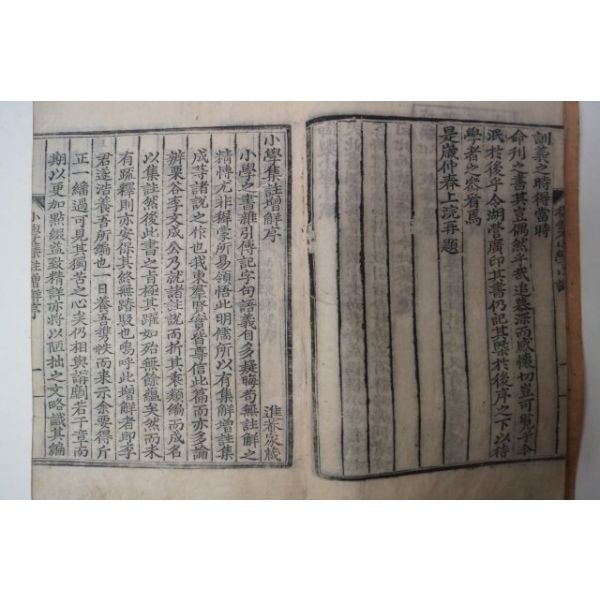 訓義之時得當時
命刊之書其豈偶然乎我追慕深而感懷切豈可
泯於後乎令湖營廣印其書仍記其槩於後序之下以待
學者之察看焉
是歲仲春上浣再題
小學集註增解序
進奉家藏
小學之書雜引傳記字句語義自多疑晦苟無註解之
精博尤非穉蒙所易領悟此明儒所以有集解增註集
成等諸說之作也我東羣賢實皆尊信此篇而亦多論
辨栗谷李文成公乃就諸註說而折其衷類編而成名
以集註然後此書之旨極其躍如殆無餘蘊矣然而未
有疏釋則亦安保其終無踳駁也嗚呼此增解者即李
君遂浩養吾所編也一日養吾携帙而來示余要得斤
正一繙過可見其獨苦之心矣仍相與辭劂若干章而
期以更加點綴益致精詳亦將以陋拙之文略識其編
小學集註增解序